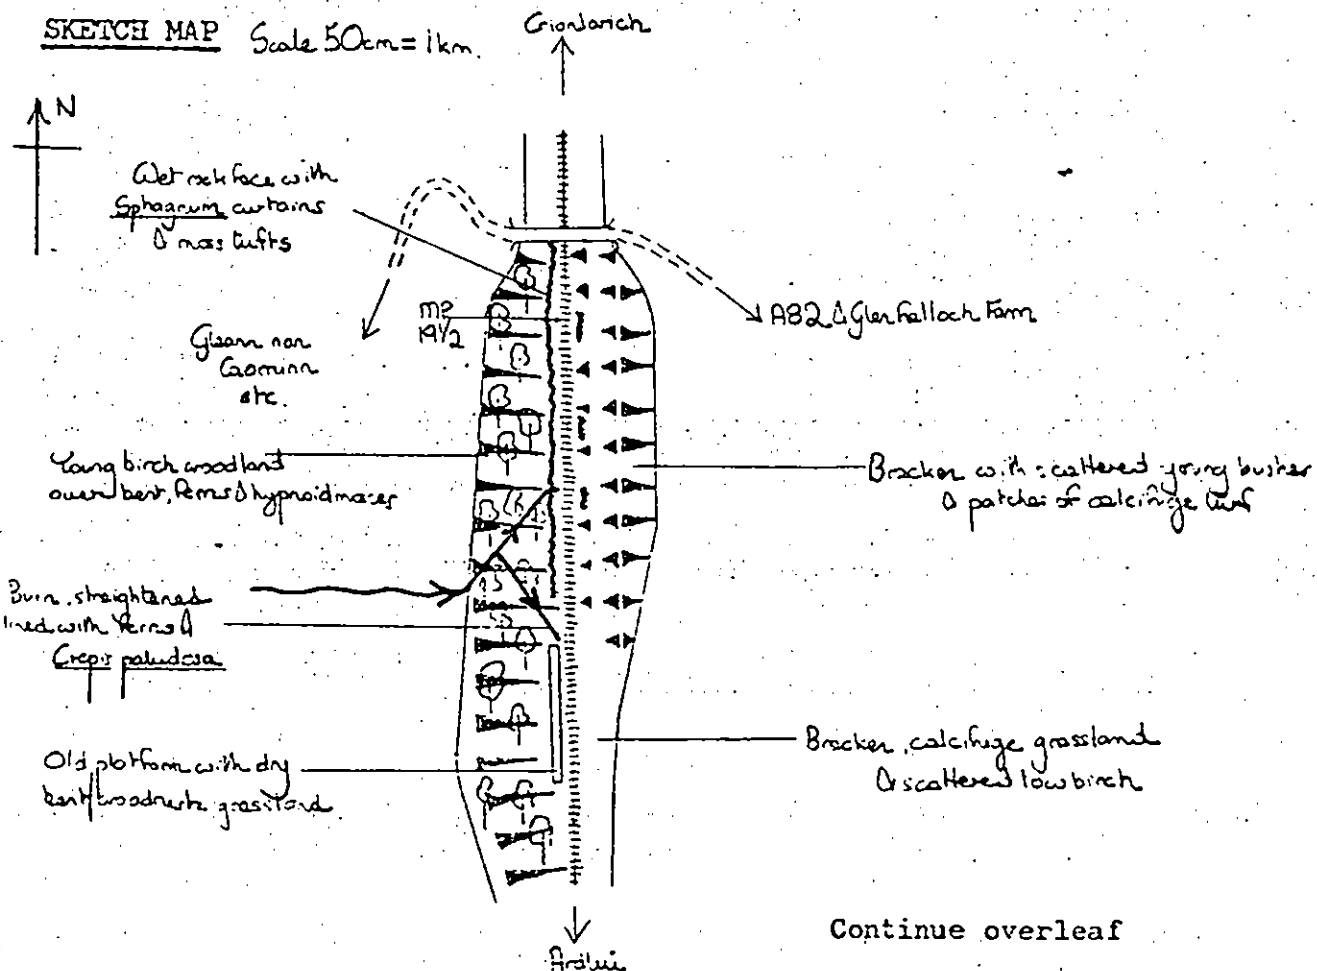 SKETCH MAP Scale 50cm = 1km.
Crionlarich
N
Wet rock face with
Sphagnum curtains
& moss tufts
MP
19 1/2
A82 & Glen Falloch Farm
Gleann nan
Caorann
etc.
Young birch woodland
over bent, ferns & hypnoid mosses
Bracken with scattered young bushes
& patches of calcifuge turf
Burn, straightened
lined with ferns &
Crepis paludosa
Old platform with dry
bent/woodrush grassland
Bracken, calcifuge grassland
& scattered low birch
Continue overleaf
Ardlui